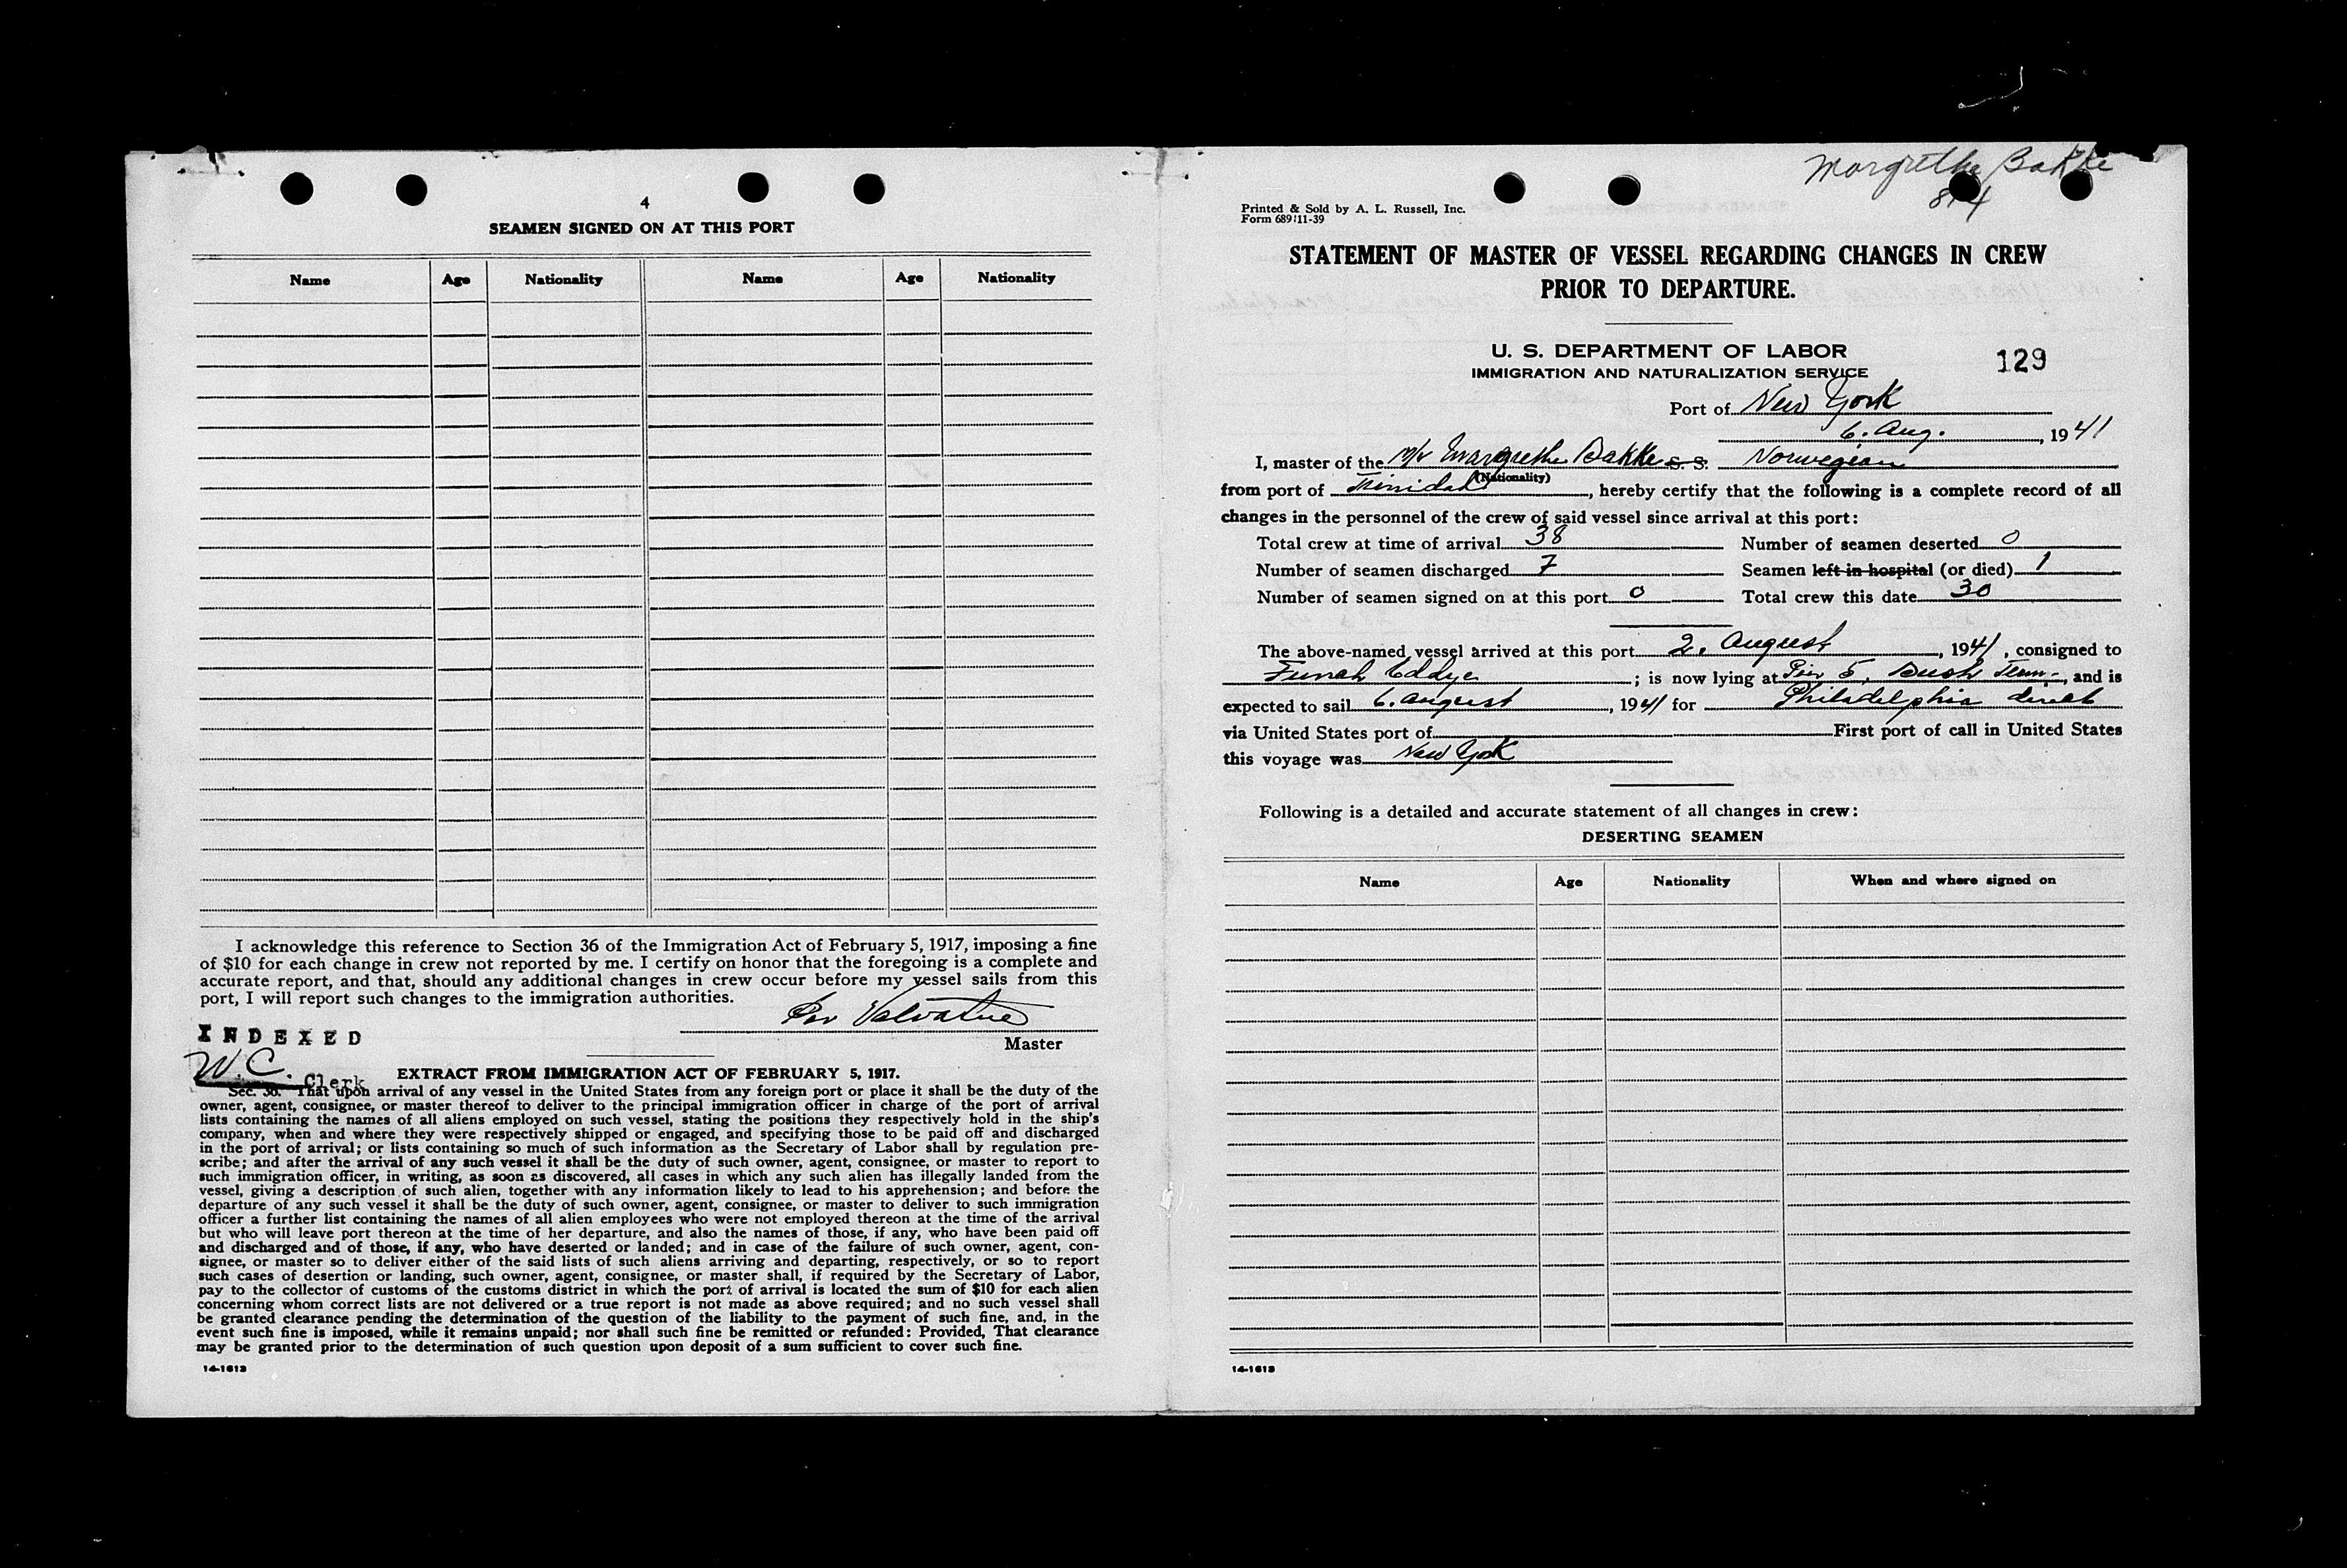 4
SEAMEN SIGNED ON AT THIS PORT
Name Age Nationality Name Age Nationality
I acknowledge this reference to Section 36 of the Immigration Act of February 5, 1917, imposing a fine
of $10 for each change in crew not reported by me. I certify on honor that the foregoing is a complete and
accurate report, and that, should any additional changes in crew occur before my vessel sails from this
port, I will report such changes to the immigration authorities.
Master
INDEXED
W C. Clerk
EXTRACT FROM IMMIGRATION ACT OF FEBRUARY 5, 1917.
Sec. 36. That upon arrival of any vessel in the United States from any foreign port or place it shall be the duty of the
owner, agent, consignee, or master thereof to deliver to the principal immigration officer in charge of the port of arrival
lists containing the names of all aliens employed on such vessel, stating the positions they respectively hold in the ship's
company, when and where they were respectively shipped or engaged, and specifying those to be paid off and discharged
in the port of arrival; or lists containing so much of such information as the Secretary of Labor shall by regulation pre-
scribe; and after the arrival of any such vessel it shall be the duty of such owner, agent, consignee, or master to report to
such immigration officer, in writing, as soon as discovered, all cases in which any such alien has illegally landed from the
vessel, giving a description of such alien, together with any information likely to lead to his apprehension; and before the
departure of any such vessel it shall be the duty of such owner, agent, consignee, or master to deliver to such immigration
officer a further list containing the names of all alien employees who were not employed thereon at the time of the arrival
but who will leave port thereon at the time of her departure, and also the names of those, if any, who have been paid off
and discharged and of those, if any, who have deserted or landed; and in case of the failure of such owner, agent, con-
signee, or master so to deliver either of the said lists of such aliens arriving and departing, respectively, or so to report
such cases of desertion or landing, such owner, agent, consignee, or master shall, if required by the Secretary of Labor,
pay to the collector of customs of the customs district in which the port of arrival is located the sum of $10 for each alien
concerning whom correct lists are not delivered or a true report is not made as above required; and no such vessel shall
be granted clearance pending the determination of the question of the liability to the payment of such fine, and, in the
event such fine is imposed, while it remains unpaid; nor shall such fine be remitted or refunded: Provided, That clearance
may be granted prior to the determination of such question upon deposit of a sum sufficient to cover such fine.
14-1613
Margrethe Bakke
Printed & Sold by A. L. Russell, Inc.
Form 689:11-39
STATEMENT OF MASTER OF VESSEL REGARDING CHANGES IN CREW
PRIOR TO DEPARTURE.
U. S. DEPARTMENT OF LABOR
129
IMMIGRATION AND NATURALIZATION SERVICE
Port of New York
6. Aug., 1941
I, master of the M/V Margrethe Bakke S. S. Norwegian
(Nationality)
from port of Trinidad, hereby certify that the following is a complete record of all
changes in the personnel of the crew of said vessel since arrival at this port:
Total crew at time of arrival 38 Number of seamen deserted 0
Number of seamen discharged 7 Seamen left in hospital (or died) 1
Number of seamen signed on at this port 0 Total crew this date 30
The above-named vessel arrived at this port 2. August, 1941, consigned to
Funch Edye; is now lying at Pier 5, Bush Term., and is
expected to sail 6. August, 1941 for Philadelphia direct
via United States port of First port of call in United States
this voyage was New York
Following is a detailed and accurate statement of all changes in crew:
DESERTING SEAMEN
Name Age Nationality When and where signed on
14-1613